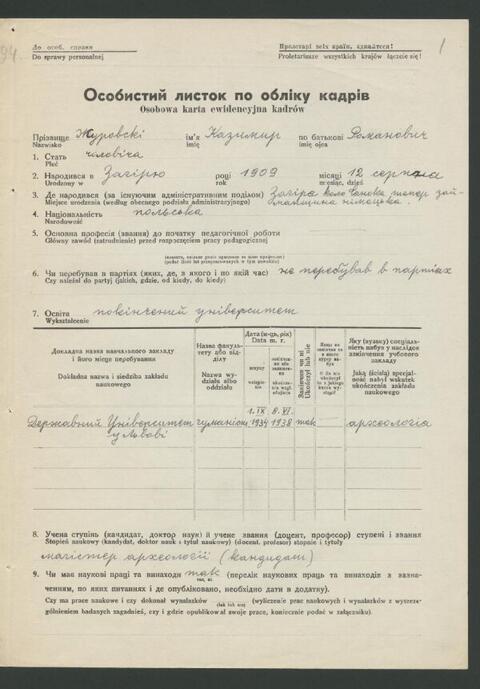 94.
До особ. справи
Do sprawy personalnej
Пролетарі всіх країн, єднайтеся!
Proletariusze wszystkich krajów łączcie się!
1
Особистий листок по обліку кадрів
Osobowa karta ewidencyjna kadrów
Прізвище Журовскі ім'я Казимир по батькові Романович
Nazwisko imię imię ojca
1. Стать чоловіча
Płeć
2. Народився в Загірю році 1909 місяці 12 серпня
Urodzony w roku miesiąc, dzień
3. Де народився (за існуючим адміністративним поділом) Загіря коло Сянока тепер зай-
Miejsce urodzenia (według obecnego podziału administracyjnego) манщина німецька.
4. Національність польська
Narodowość
5. Основна професія (звання) до початку педагогічної роботи
Główny zawód (zatrudnienie) przed rozpoczęciem pracy pedagogicznej
6. Чи перебував в партіях (яких, де, з якого і по якій час) не перебував в партіях
Czy należał do partyj (jakich, gdzie, od kiedy, do kiedy)
7. Освіта покінчений університет
Wykształcenie
Докладна назва навчального закладу і його місце перебування
Dokładna nazwa i siedziba zakładu naukowego
Назва факультету або відділу
Nazwa wydziału albo oddziału
Дата (м-ць, рік)
Data m. r.
вступу
Закінчив чи ні
Ukończył lub nie
Яку (вузку) спеціальність набув у наслідок закінчення учбового закладу
Jaką (ścisłą) specjalność nabył wskutek ukończenia zakładu naukowego
1. IX 8. VI.
Державний Університет гуманіст 1934 1938 так археологія
у Львові
8. Учена ступінь (кандидат, доктор наук) й учене звання (доцент, професор) ступені і звання
Stopień naukowy (kandydat, doktor nauk i tytuł naukowy) (docent, profesor) stopnie i tytuły
магістер археології (кандидат)
9. Чи має наукові праці та винаходи так (перелік наукових праць та винаходів з зазна-
так, ні
ченням, по яких питаннях і де опубліковано, необхідно дати в додатку).
Czy ma prace naukowe i czy dokonał wynalazków (wyliczenie prac naukowych i wynalazków z wyszcze-
(tak lub nie)
gólnieniem badanych zagadnień, czy i gdzie opublikował swoje prace, koniecznie podać w załączniku).